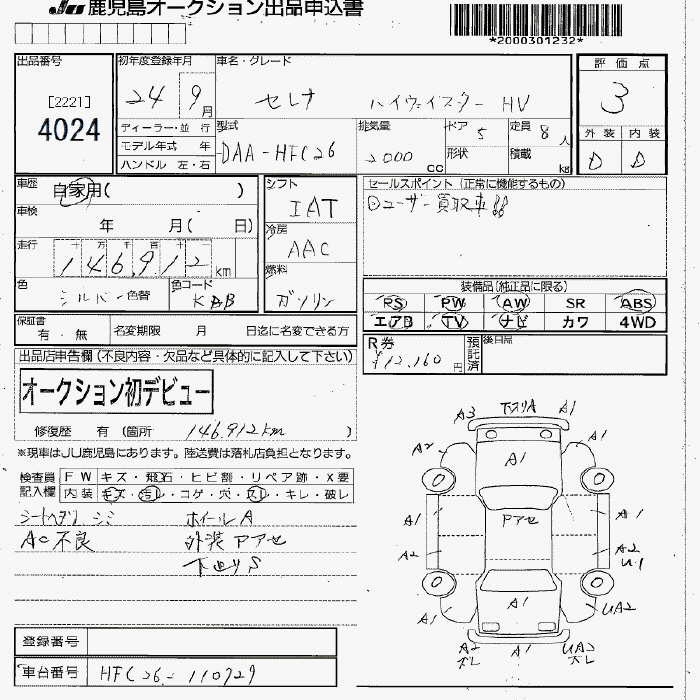 JU 鹿児島オークション出品申込書
*2000301232*
出品番号
[2221]
4024
初年度登録年月
24 9月
ディーラー・並 行
モデル年式 年
ハンドル 左・右
車名・グレード
セレナ ハイウェイスター HV
型式
DAA-HFC26
排気量
2000 cc
ドア 5
定員 8人
形状
積載 kg
評価点
3
外装 内装
D D
車歴
自家用( )
車検
年 月( 日)
走行
十 万 千 百 十
146,912 km
色
シルバー 色替
色コード
KAB
シフト
IAT
冷房
AAC
燃料
ガソリン
セールスポイント (正常に機能するもの)
ユーザー買取車!!
装備品(純正品に限る)
PS PW AW SR ABS
エアB TV ナビ カワ 4WD
保証書
有・無
名変期限 月 日迄に名変できる方
R券
¥12,160円
預託済
後日局
出品店申告欄(不良内容・欠品など具体的に記入して下さい)
オークション初デビュー
修復歴 有 (箇所 146,912km )
※現車はJU鹿児島にあります。陸送費は落札店負担となります。
検査員記入欄
FW キズ・飛石・ヒビ割・リペア跡・X要
内装 キズ・汚レ・コゲ・穴・スレ・キレ・破レ
シートヘタリ シミ ホイールA
AC不良 外装 Pアセ
下廻りS
登録番号
車台番号 HFC26-110729
A3 下スリA A1
A2 A1 A1
A1 Pアセ A1
A2 A2
U1
A1 A1 UA2
A2 A1 UA2
ズレ ズレ